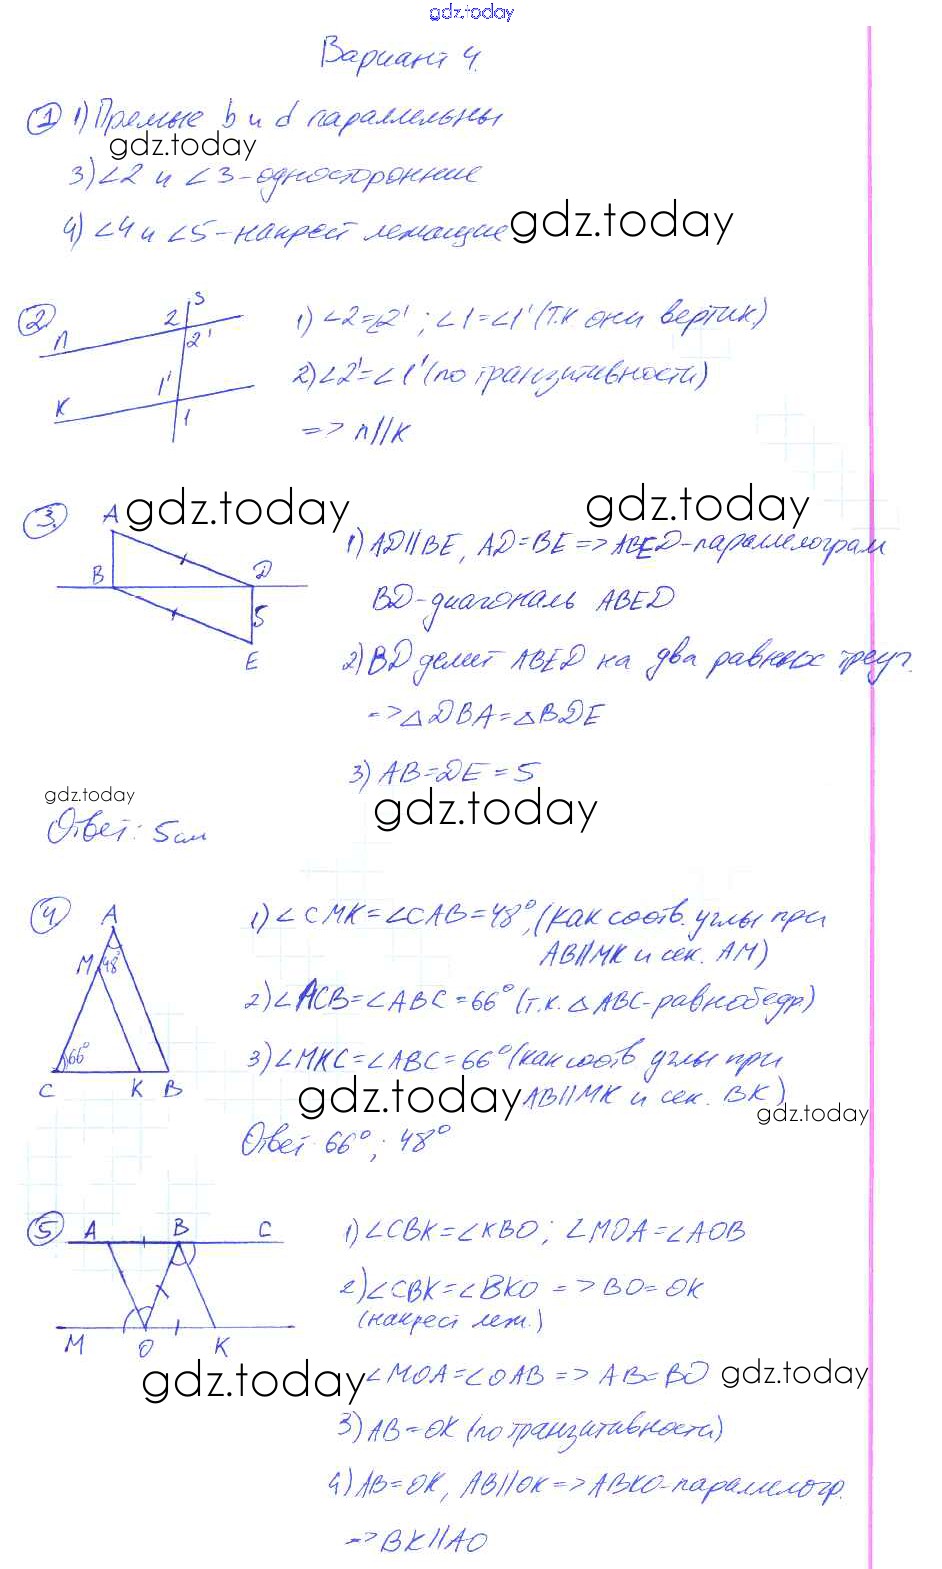 gdz.today
Вариант 4.
1 1) Прямые b и d параллельны
gdz.today
3) ∠2 и ∠3 - односторонние
4) ∠4 и ∠5 - накрест лежащие gdz.today
2 n K S 2 2' 1' 1
1) ∠2=∠2' ; ∠1=∠1' (т.к они вертик.)
2) ∠2'=∠1' (по транзитивности)
=> n||K
3. A B D 5 E
gdz.today gdz.today
1) AD||BE, AD=BE => ABED-параллелограм
BD-диагональ ABED
2) BD делит ABED на два равных треуг.
=> △DBA=△BDE
3) AB=DE=5
gdz.today gdz.today
Ответ: 5см
4 A M 48° 66° C K B
1) ∠CMK=∠CAB=48°, (как соотв. углы при
AB||MK и сек. AM)
2) ∠ACB=∠ABC=66° (т.к. △ABC-равнобедр)
3) ∠MKC=∠ABC=66° (как соотв углы при
gdz.today AB||MK и сек. BK)
gdz.today
Ответ 66°; 48°
5 A B C M O K
1) ∠CBK=∠KBO; ∠MOA=∠AOB
2) ∠CBK=∠BKO => BO=OK
(накрест леж.)
gdz.today ∠MOA=∠OAB => AB=BO gdz.today
3) AB=OK (по транзитивности)
4) AB=OK, AB||OK => ABKO-параллелогр.
=> BK||AO